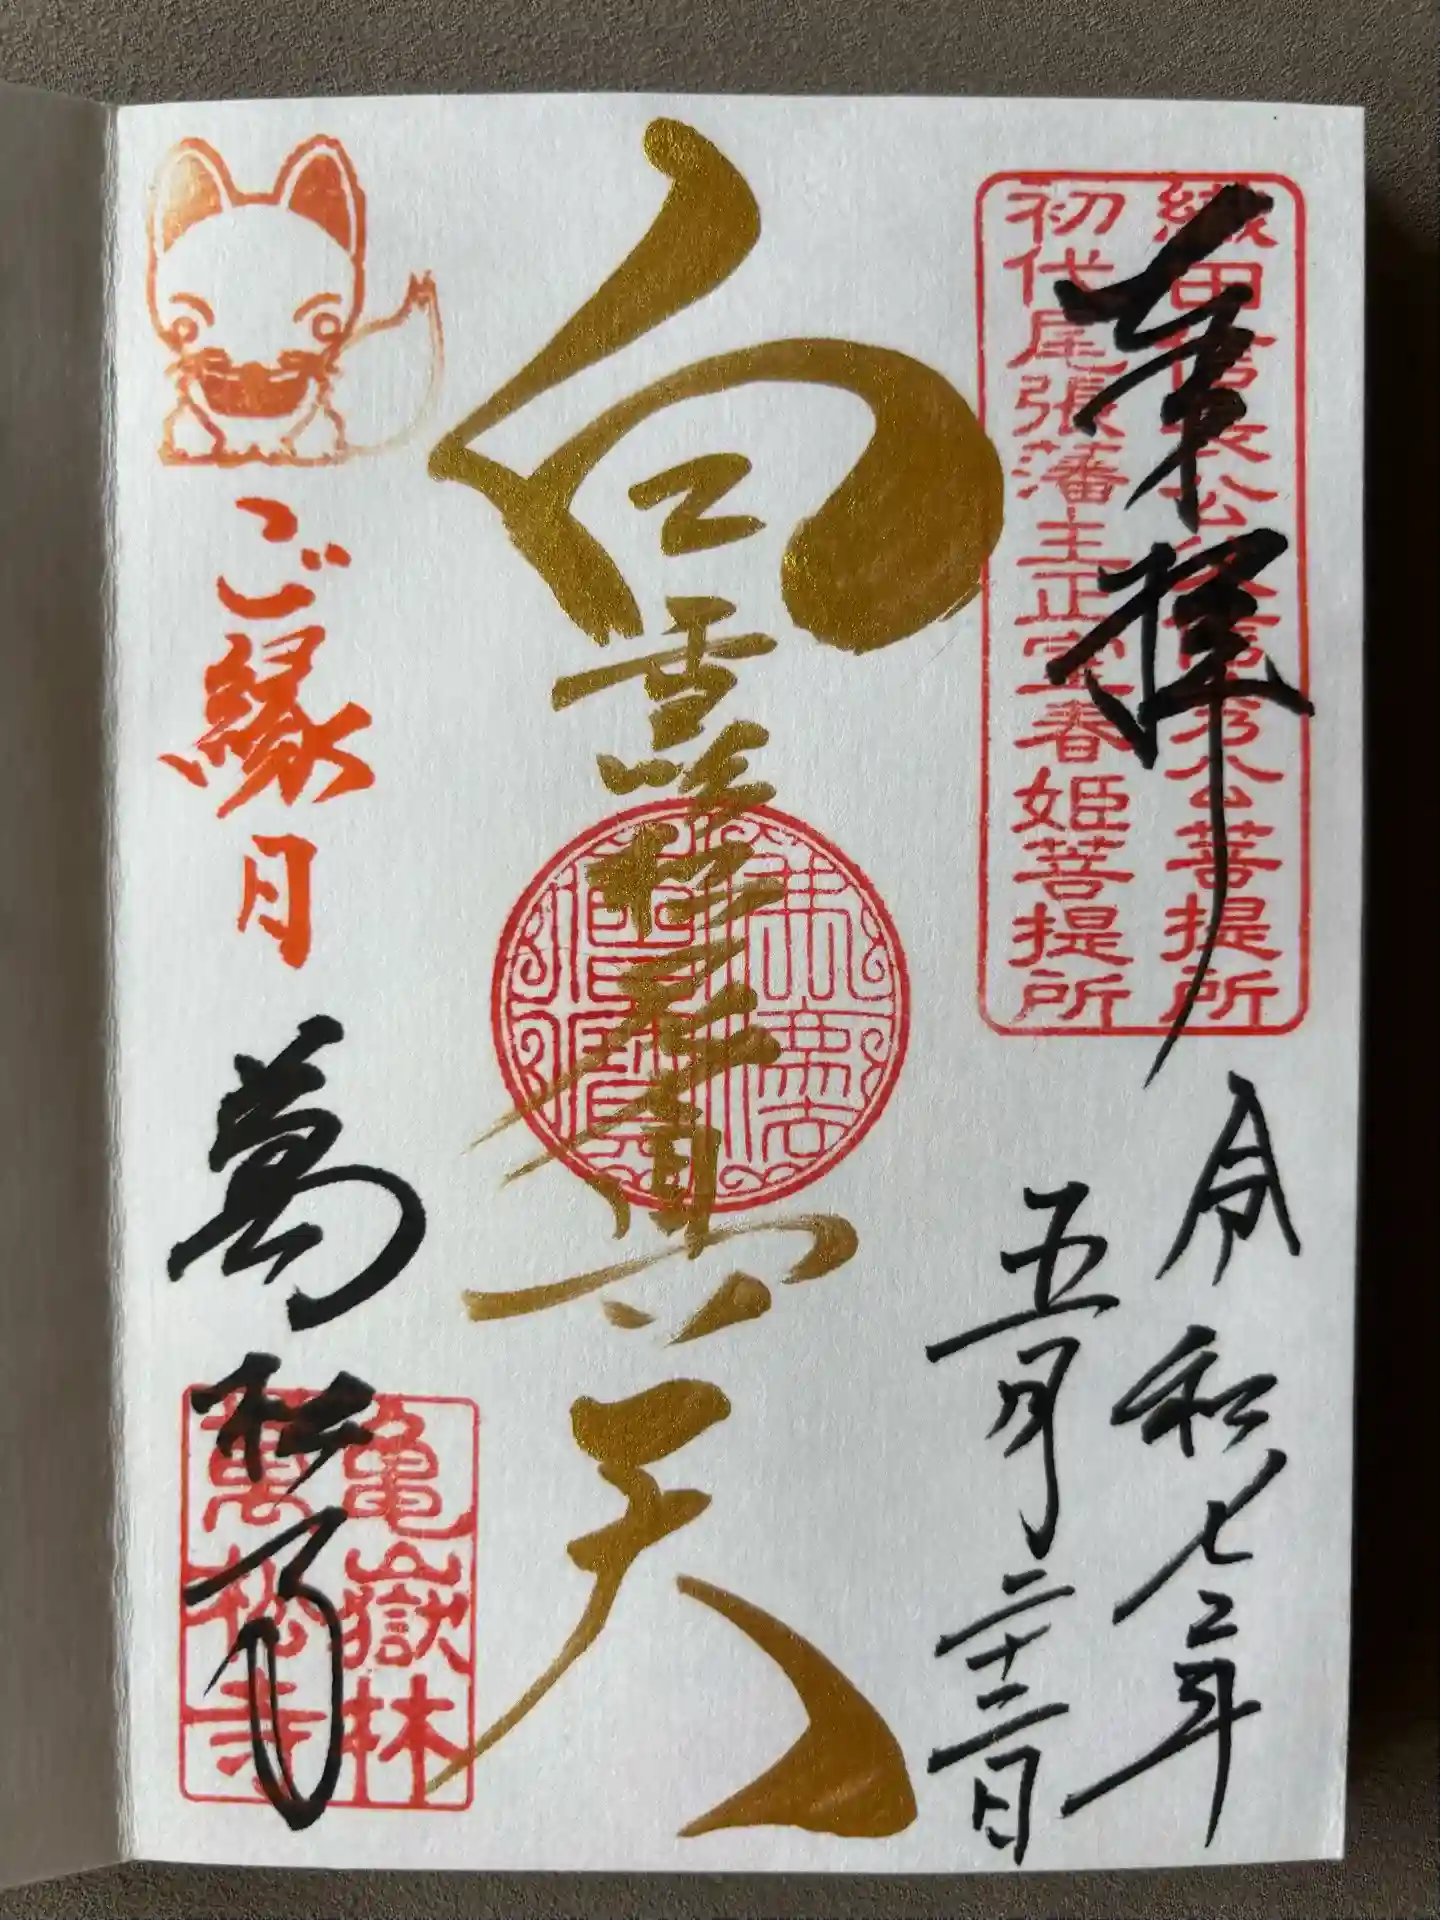 織田信長公父信秀公菩提所
初代尾張藩主正室春姫菩提所
奉拝
令和七年
五月二十二日
白雪吒枳尼眞天
ご縁日
萬松寺
亀嶽林
萬松寺